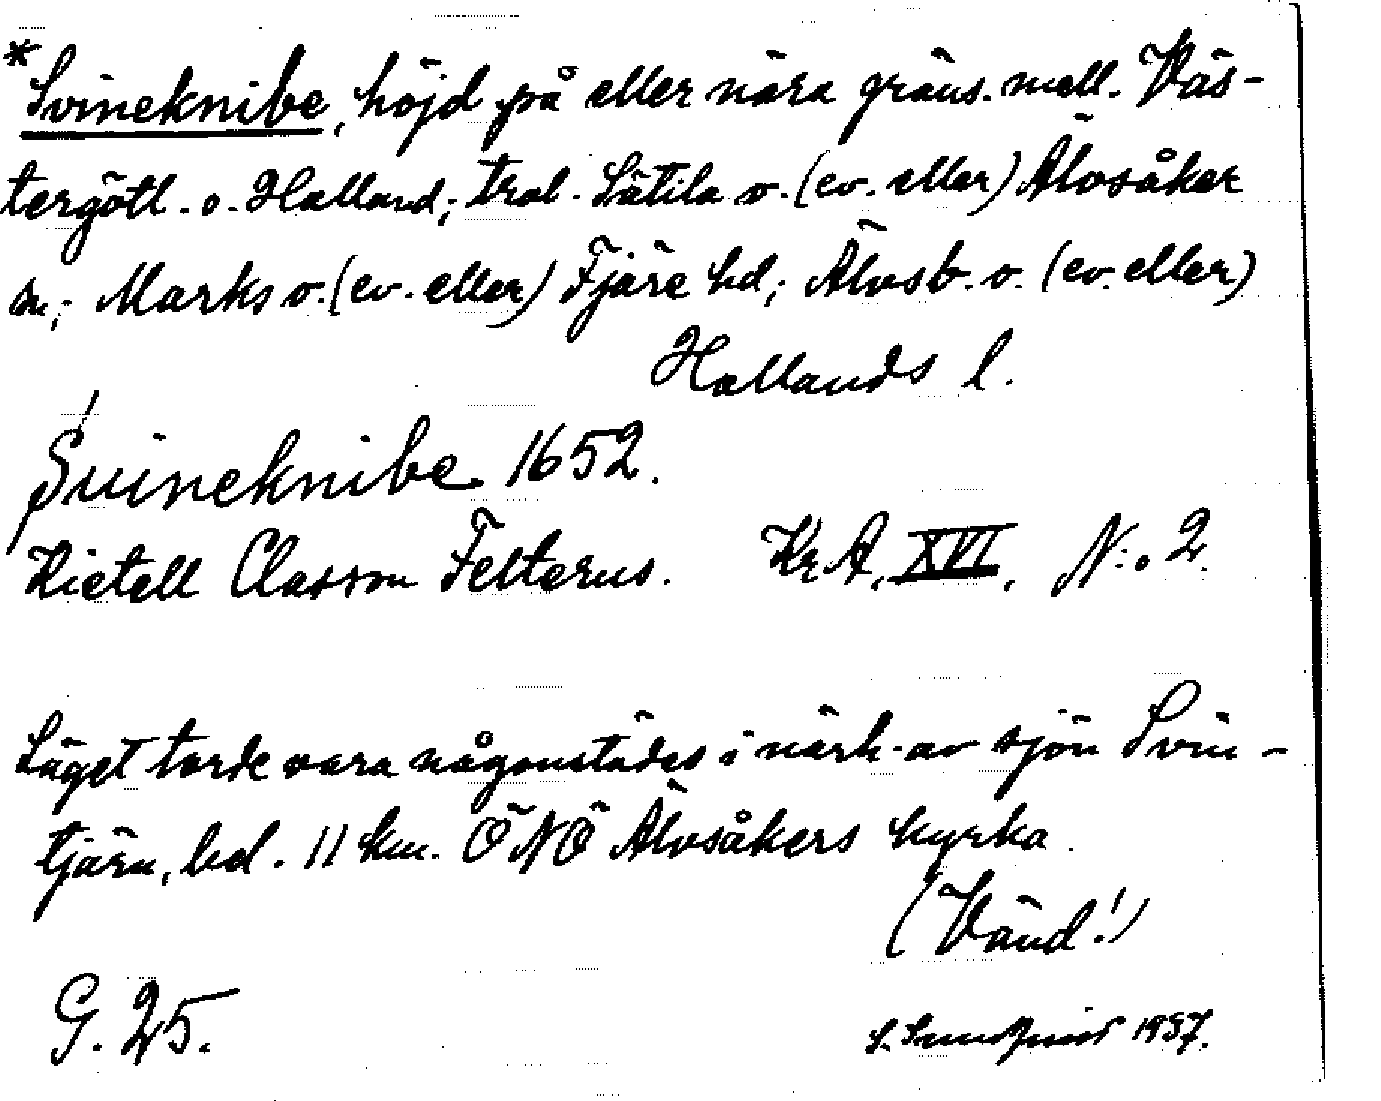 *Svineknibe, höjd på eller nära gräns. mell. Väs-
tergötl. o. Halland; trol. Sätila o. (ev. eller) Älvsåker
sn; Marks o. (ev. eller) Fjäre hd; Älvsb. o. (ev. eller)
Hallands l.
Suineknibe 1652.
Kietell Classon Felterus. KrA, XVI, N:o 2.
Läget torde vara någonstädes i närh. av sjön Svin-
tjärn, bel. 11 km. ÖNÖ Älvsåkers kyrka.
(Vänd!)
G. 25.
S. Sundqvist 1957.